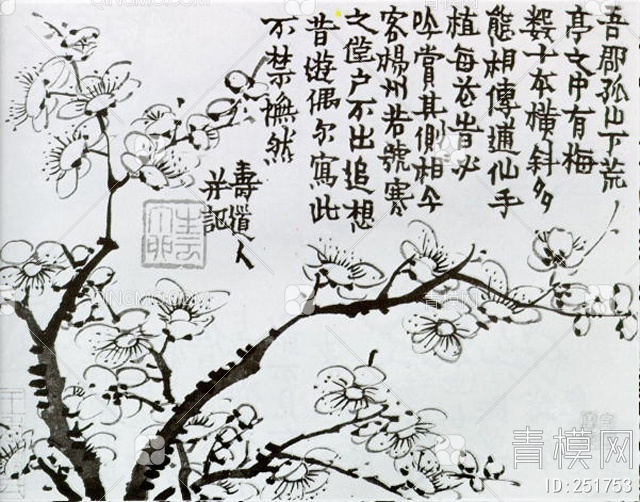 吾郡孤山下荒
亭文中有梅
数十本横斜多
態相傳逋仙手
植每花告必
吟賞其側相今
客楊州若號寒
之[?]户不出追想
昔遊偶尔寫此
不禁憮然
壽道人
并記
青模网
ID:251753